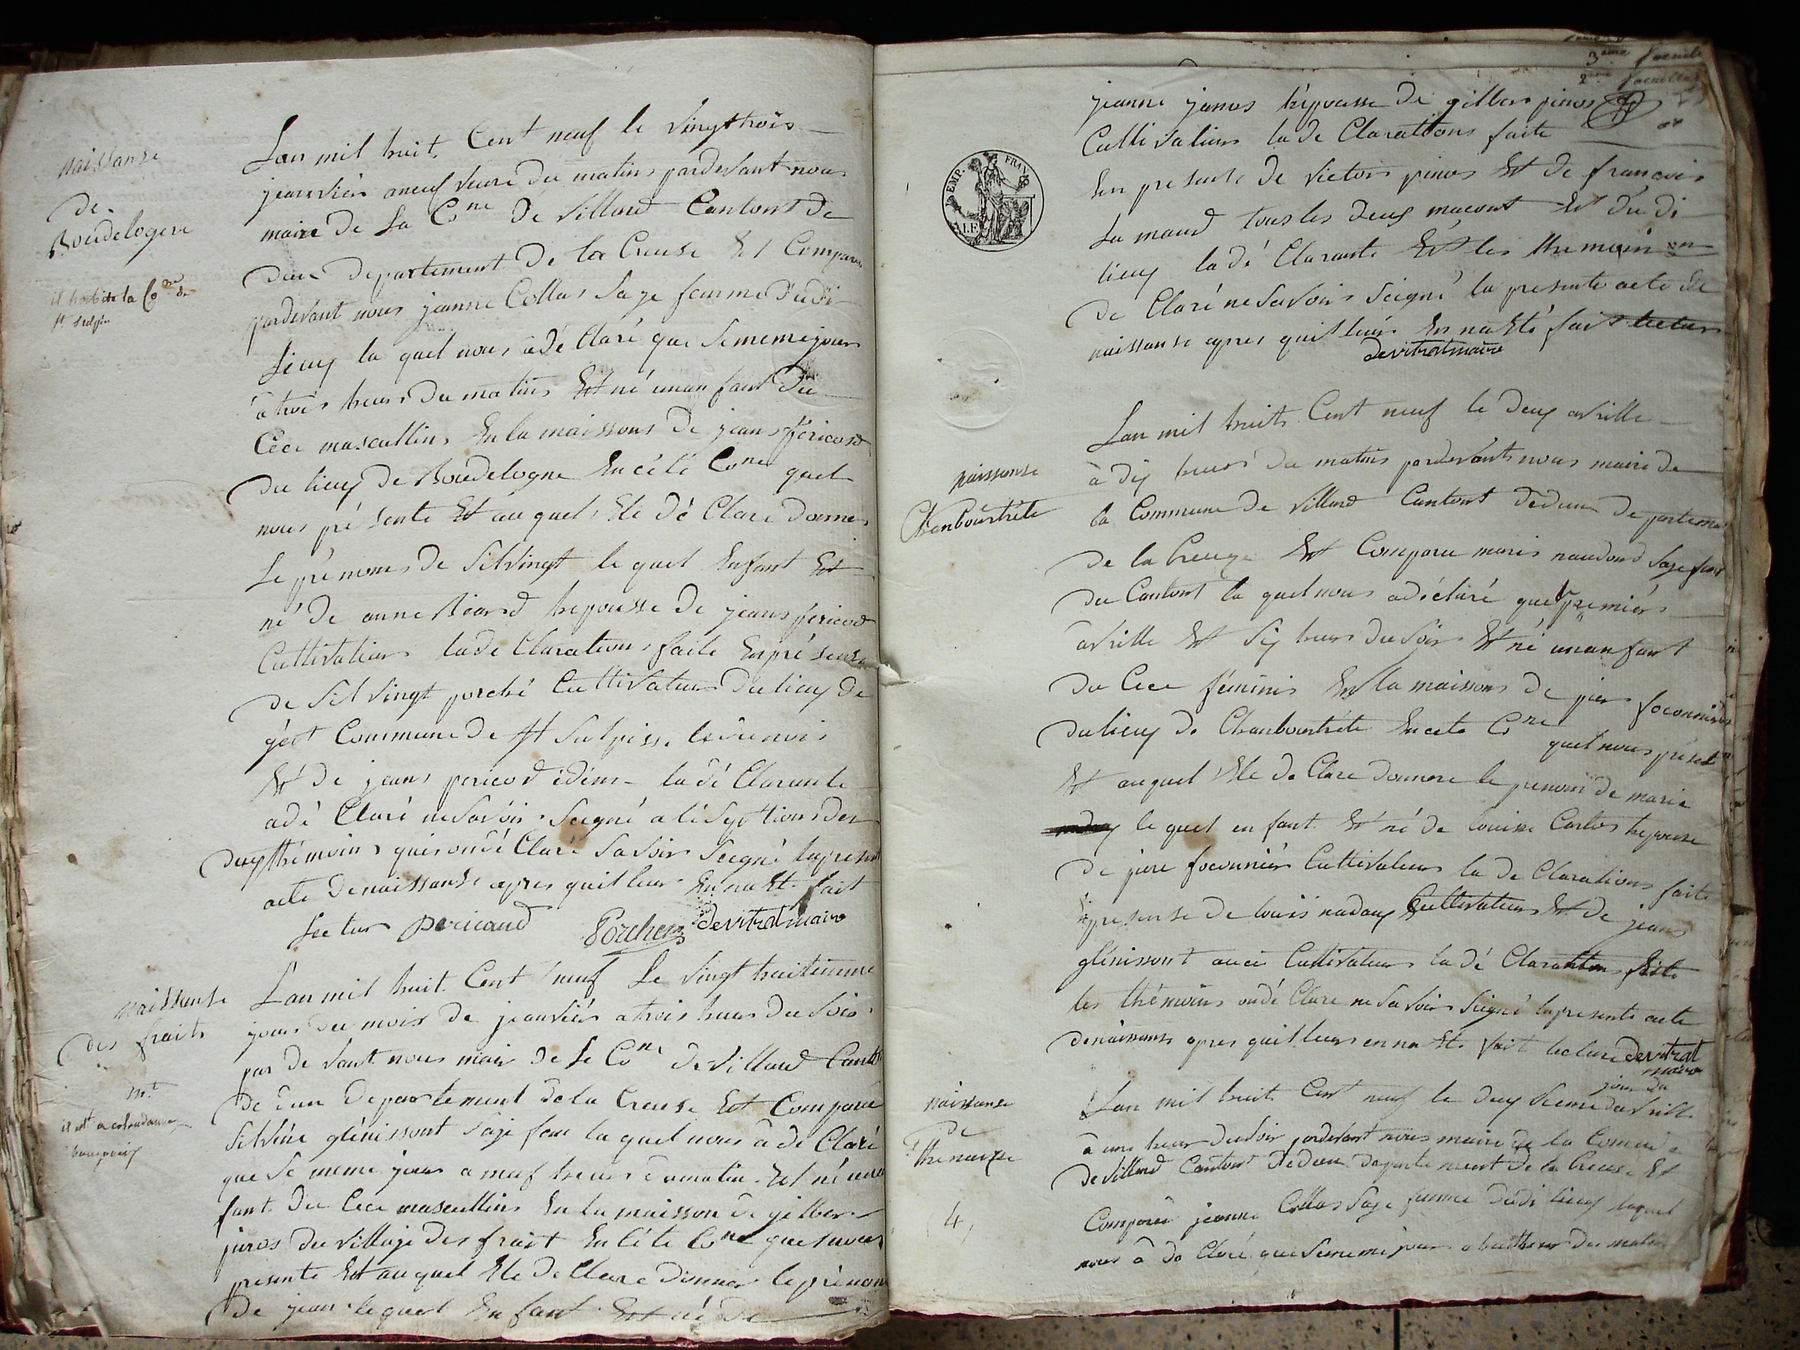 naissanse
de
Boudelogne
il habite la Cone de
st sulpise
Lan mil huit Cent neuf le vingthrois
jeanviér aneuf heure du matins pardevant nous
maire de La Cone de villard Cantont de
dun departement de la Creuse Et Comparu
pardevant nous jeanne Collas Sage femme dudi
Lieuy la quel nous adé Claré que Sememe jour
a trois heurs du matins Et né unan fant Du
Céce mascullins En la maissons de jeans pericord
du lieuy de Boudelogne En céte Cone quel
nous pré sente Et au quel Ele dé Clare donner
Le prénoms de Silvingt le quel Enfant Et
né de anne Bicard hépousse de jeans pericord
Cultivateur ladé Clarations faite En pré sense
de Silvingt porché Cultivateur du lieuy de
Commune de St Sulpisse
Et de jeans pericord idem la dé Clarante
adé Claré ne Savoir Seigné a lé Septions des
deuy thémoins qui ondé Claré Savoir Seigné la presen
acte denaissanse apres quil leur En na Eté fait
lectur pericaud Porcher devitrat maire
naissanse
des fraits
mt
Lan mil huit Cent neuf Le vingt huitiemme
jours du mois de jeanviér a trois heur du Soir
par de vant nous mair de Le Cone de villard Cantont
de dun Departement de la Creuse Est Comparu
Silvine glénissont Sage fem la quel nous à dé Claré
que Se meme jour a neuf heurs du matin Et né unen
fant du Cece mascullins En la maisson de gilber
du village des frait En céte Cone quel nous
presente Et au quel Ele dé Clare donner le prénom
de jean le quel En fant Et né de
3eme
2eme
jeanne hépousse de gilber
Cultivateur la dé Clarations faite
En presente de victoir Et de francois
La maud tous les deuy macont Et Du di
lieuy la dé Clarante Et les themoins on
dé Claré ne Savoir Seigné la presente acte de
naissanse apres quil leur En na Eté fait lectur
devitrat maire
TIMP. FRANC.
naissanse
Chanboutréte
Lan mil huit Cent neuf le deuy avrille
à diy heurs du matins pardevant nous maire de
la Commune de villard Cantont de dun departement
de la Creuze Et Comparu marie naudond Sage fem
du Cantont la quel nous a déclaré quel premiér
avrille Et Siy heurs du Soir Et né unanfant
du Cece féminis En la maissons de pier foconniér
du lieuy de Chanboutréte En cete Cone quel nous présent
Et au quel Ele dé Clare donnere le prenom de marie
le quel en fant Et né de louise Carlos hépouse
de piere foconniér Cultivateur la dé Clarations faite
Enpresense de louis nadauy Cultivateur Et de jeans
glénissont aucie Cultivateur la dé Clarations faite
les thémoins ondé Claré ne Savoir Seigné la presente acte
denaissanse apres quil leur en na Eté fait lecture devitrat
maire
naissanse
de
4
jour du
Lan mil huit Cent neuf le deuy davrille
à une heur du Soir pardevant nous maire de la Comune
de villard Cantont de dun departement de la Creuse Et
Comparue jeanne Collas Sage femme dudi lieuy laquel
nous à dé Claré que Sememe jour a huit heur du matin